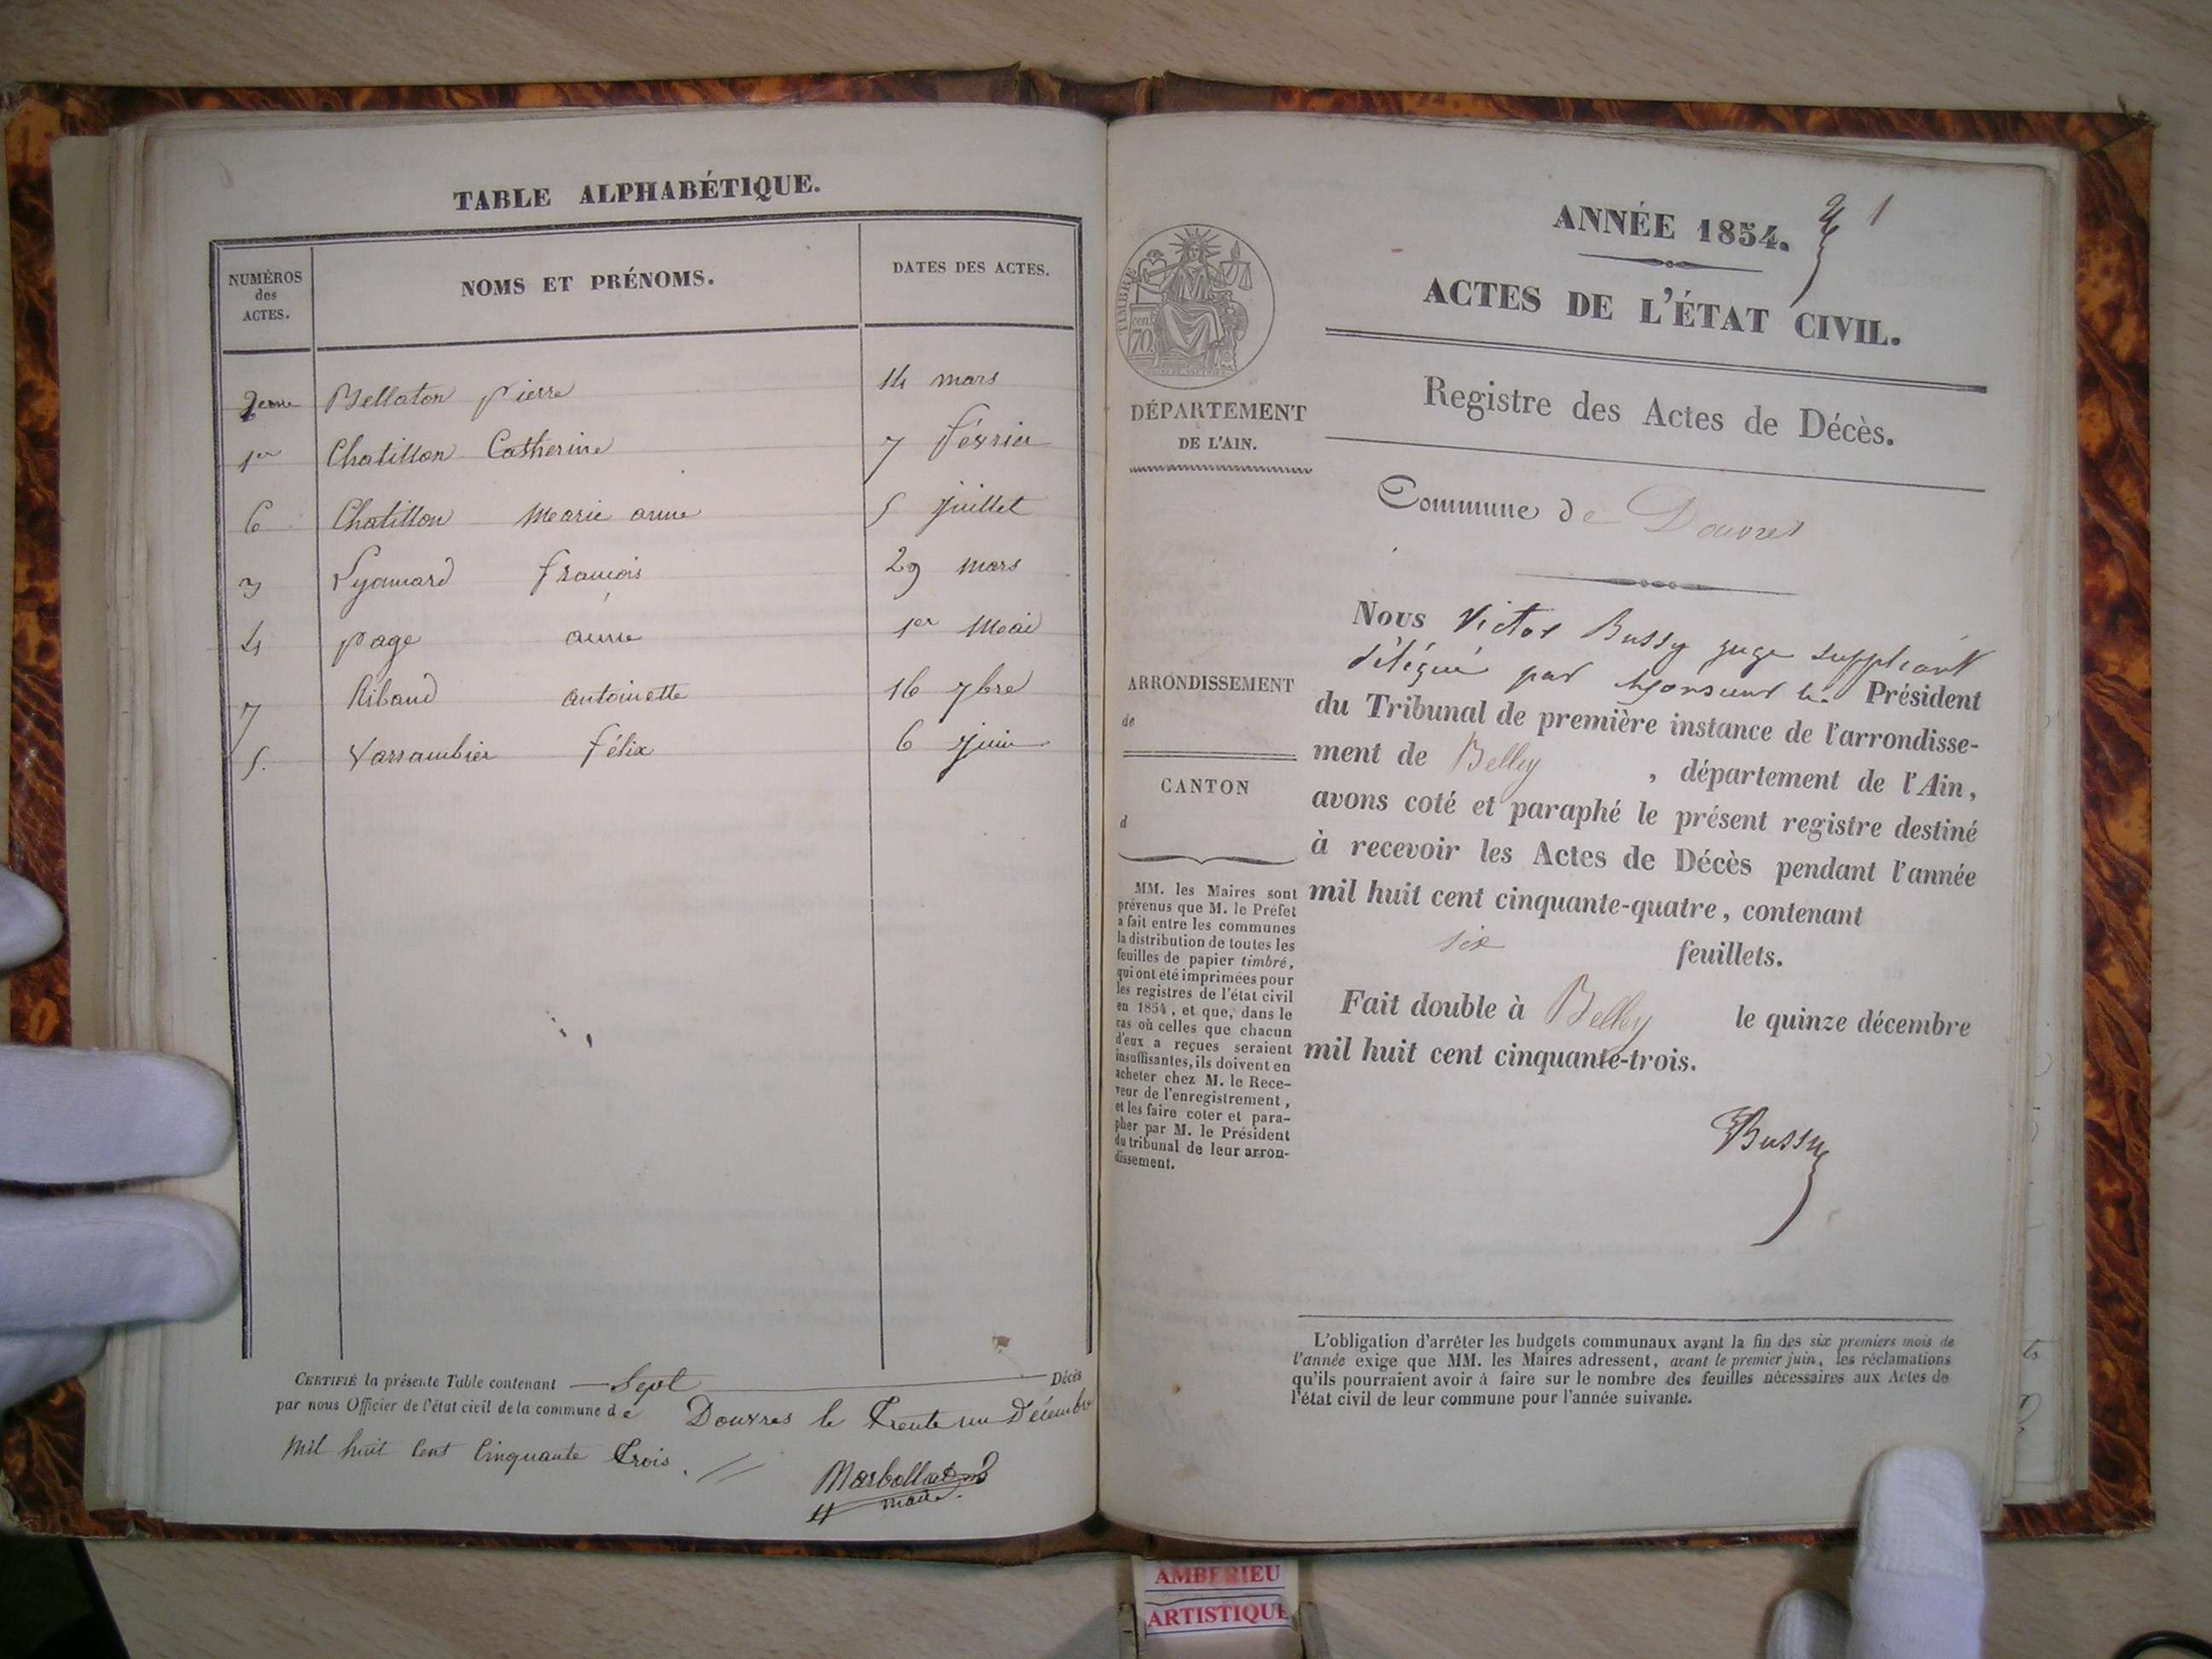 TABLE ALPHABÉTIQUE.
NUMÉROS des ACTES.
NOMS ET PRÉNOMS.
DATES DES ACTES.
2eme Bellaton pierre 14 mars
1er Chatillon Catherine 7 février
6 Chatillon Marie anne 5 juillet
3 Lyonnard françois 29 mars
4 page anne 1er Mai
7 Ribaud antoinette 16 7bre
5. Varrambier félix 6 juin
CERTIFIÉ la présente Table contenant Sept Décès
par nous Officier de l'état civil de la commune de Douvres le trente un Décembre
mil huit cent Cinquante trois.
maire.
ANNÉE 1854. 1
ACTES DE L'ÉTAT CIVIL.
Registre des Actes de Décès.
Commune de Douvres
TIMBRE
70
DÉPARTEMENT
DE L'AIN.
ARRONDISSEMENT
de
CANTON
d
MM. les Maires sont
prévenus que M. le Préfet
a fait entre les communes
la distribution de toutes les
feuilles de papier timbré,
qui ont été imprimées pour
les registres de l'état civil
en 1854, et que, dans le
cas où celles que chacun
d'eux a reçues seraient
insuffisantes, ils doivent en
acheter chez M. le Rece-
veur de l'enregistrement,
et les faire coter et para-
pher par M. le Président
du tribunal de leur arron-
dissement.
Nous Victor Bussy juge suppléant
délégué par Monsieur le Président
du Tribunal de première instance de l'arrondisse-
ment de Belley, département de l'Ain,
avons coté et paraphé le présent registre destiné
à recevoir les Actes de Décès pendant l'année
mil huit cent cinquante-quatre, contenant
six feuillets.
Fait double à Belley le quinze décembre
mil huit cent cinquante-trois.
Bussy
L'obligation d'arrêter les budgets communaux avant la fin des six premiers mois de
l'année exige que MM. les Maires adressent, avant le premier juin, les réclamations
qu'ils pourraient avoir à faire sur le nombre des feuilles nécessaires aux Actes de
l'état civil de leur commune pour l'année suivante.
AMBERIEU
ARTISTIQUE